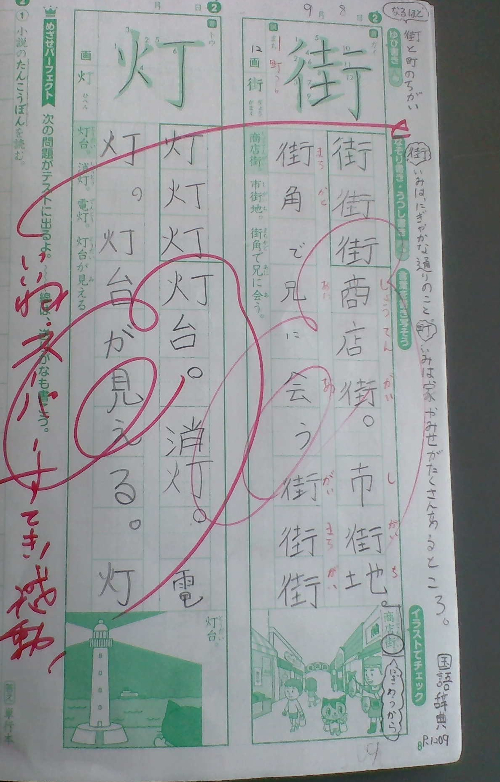 なるほど
街と町のちがい
街 いみは、にぎやかな通りのこと 町 いみは家やみせがたくさんあるところ。
国語辞典
P.1209
9月8日
2
ゆび書き
なぞり書き・うつし書き
イラストでチェック
街
12画
街
街街街商店街。市街地。
しょうてんがい
しがいち
街角で兄に会う街街街
商店街 市街地。街角で兄に会う。
商店街
月 日
2
灯
画
灯
灯灯灯灯台。消灯。電
灯。灯台が見える。灯
灯台。消灯。電灯。灯台が見える
灯台
めざせパーフェクト
次の問題がテストに出るよ。
いいね・スーパーすてき!感動!
2
① 小説のたんこうぼんを読む。
答え 単行本